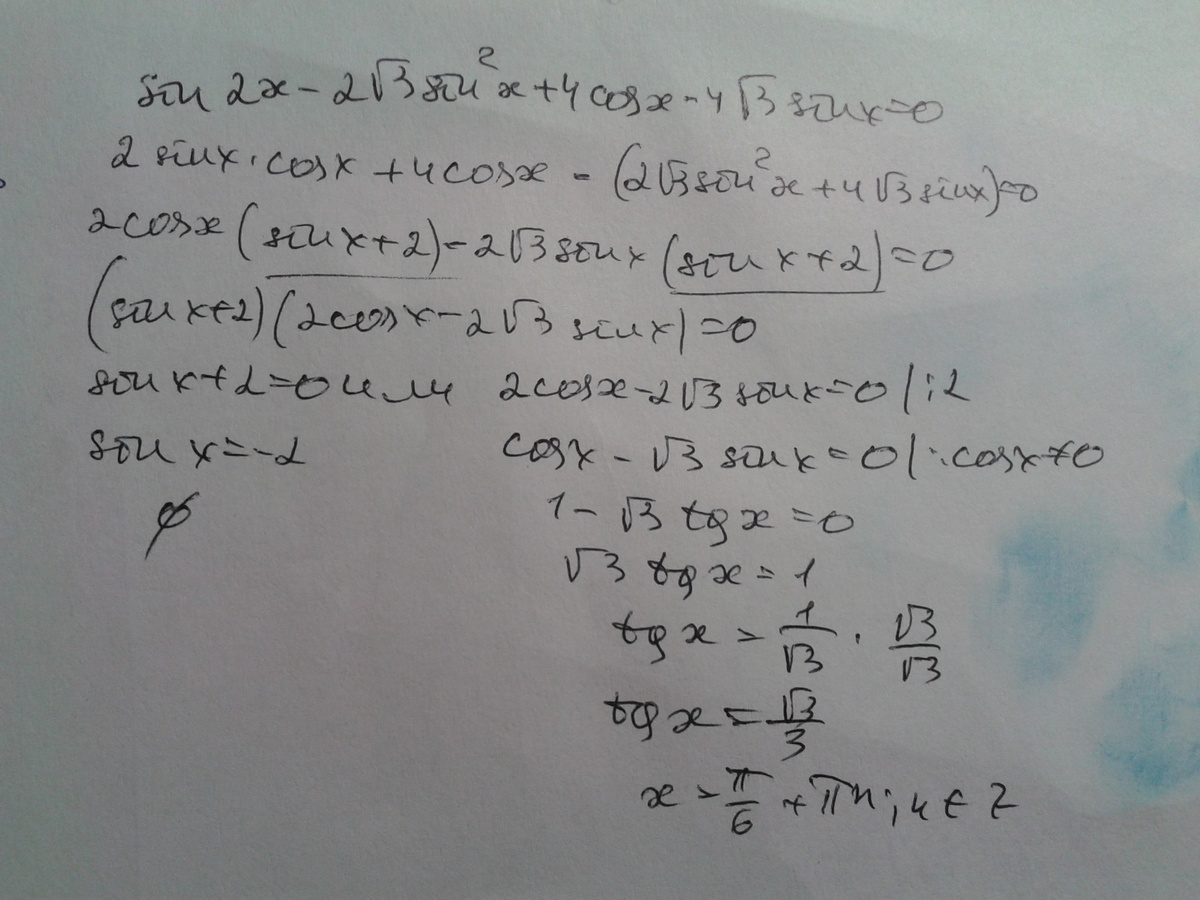 sin 2x - 2√3 sin²x + 4cosx - 4√3 sinx = 0
2 sinx · cosx + 4cosx - (2√3 sin²x + 4√3 sinx) = 0
2cosx (sinx+2) - 2√3 sinx (sinx+2) = 0
(sinx+2)(2cosx - 2√3 sinx) = 0
sinx+2=0 или 2cosx - 2√3 sinx = 0 |:2
sinx = -2 cosx - √3 sinx = 0 |:cosx ≠ 0
∅ 1 - √3 tgx = 0
√3 tgx = 1
tgx = 1/√3 · √3/√3
tgx = √3/3
x = π/6 + πn; n ∈ Z